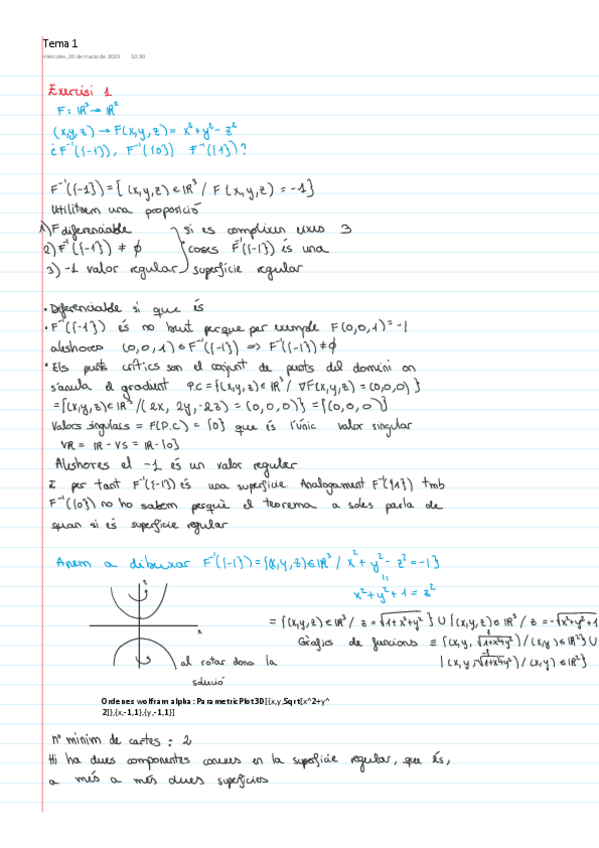 Tema 1
miércoles, 29 de marzo de 2023 10:30
Exercisi 1
F: ℝ³ → ℝ²
(x,y,z) → F(x,y,z) = x² + y² - z²
¿F⁻¹({-1}), F⁻¹({0}) F⁻¹({1})?
F⁻¹({-1}) = { (x,y,z) ∈ ℝ³ / F(x,y,z) = -1}
Utilitzem una proposició
1) F diferenciable si es complixen eixes 3
2) F⁻¹({-1}) ≠ ∅ coses F⁻¹({-1}) és una
3) -1 valor regular superfície regular
· Diferenciable si que és
· F⁻¹({-1}) és no buit perque per exemple F(0,0,1) = -1
aleshores (0,0,1) ∈ F⁻¹({-1}) => F⁻¹({-1}) ≠ ∅
· Els punts crítics son el conjunt de punts del domini on
s'anula el gradient P.C = {(x,y,z) ∈ ℝ³ / ∇F(x,y,z) = (0,0,0)}
= {(x,y,z) ∈ ℝ³ / (2x, 2y, -2z) = (0,0,0)} = {(0,0,0)}
Valors singulars = F(P.C) = {0} que és l'únic valor singular
VR = ℝ - VS = ℝ - {0}
Aleshores el -1 és un valor regular
I per tant F⁻¹({-1}) és una superfície. Analogament F⁻¹({1}) tmb
F⁻¹({0}) no ho sabem perquè el teorema a soles parla de
quan si és superfície regular
Anem a dibuixar F⁻¹({-1}) = {(x,y,z) ∈ ℝ³ / x² + y² - z² = -1}
x² + y² + 1 = z²
z
x
= {(x,y,z) ∈ ℝ³ / z = √1+x²+y² } ∪ {(x,y,z) ∈ ℝ³ / z = -√x²+y²+1
Gràfics de funcions ≡ {(x,y, √1+x²+y²) / (x,y) ∈ ℝ²} ∪
{(x,y, -√1+x²+y²) / (x,y) ∈ ℝ²}
al rotar dona la
solució
Ordenes wolfram alpha: ParametricPlot3D[{x,y,Sqrt[x^2+y^
2]},{x,-1,1},{y,-1,1}]
nº minim de cartes: 2
Hi ha dues components conexes en la superfície regular, que és,
a més a més dues superfícies